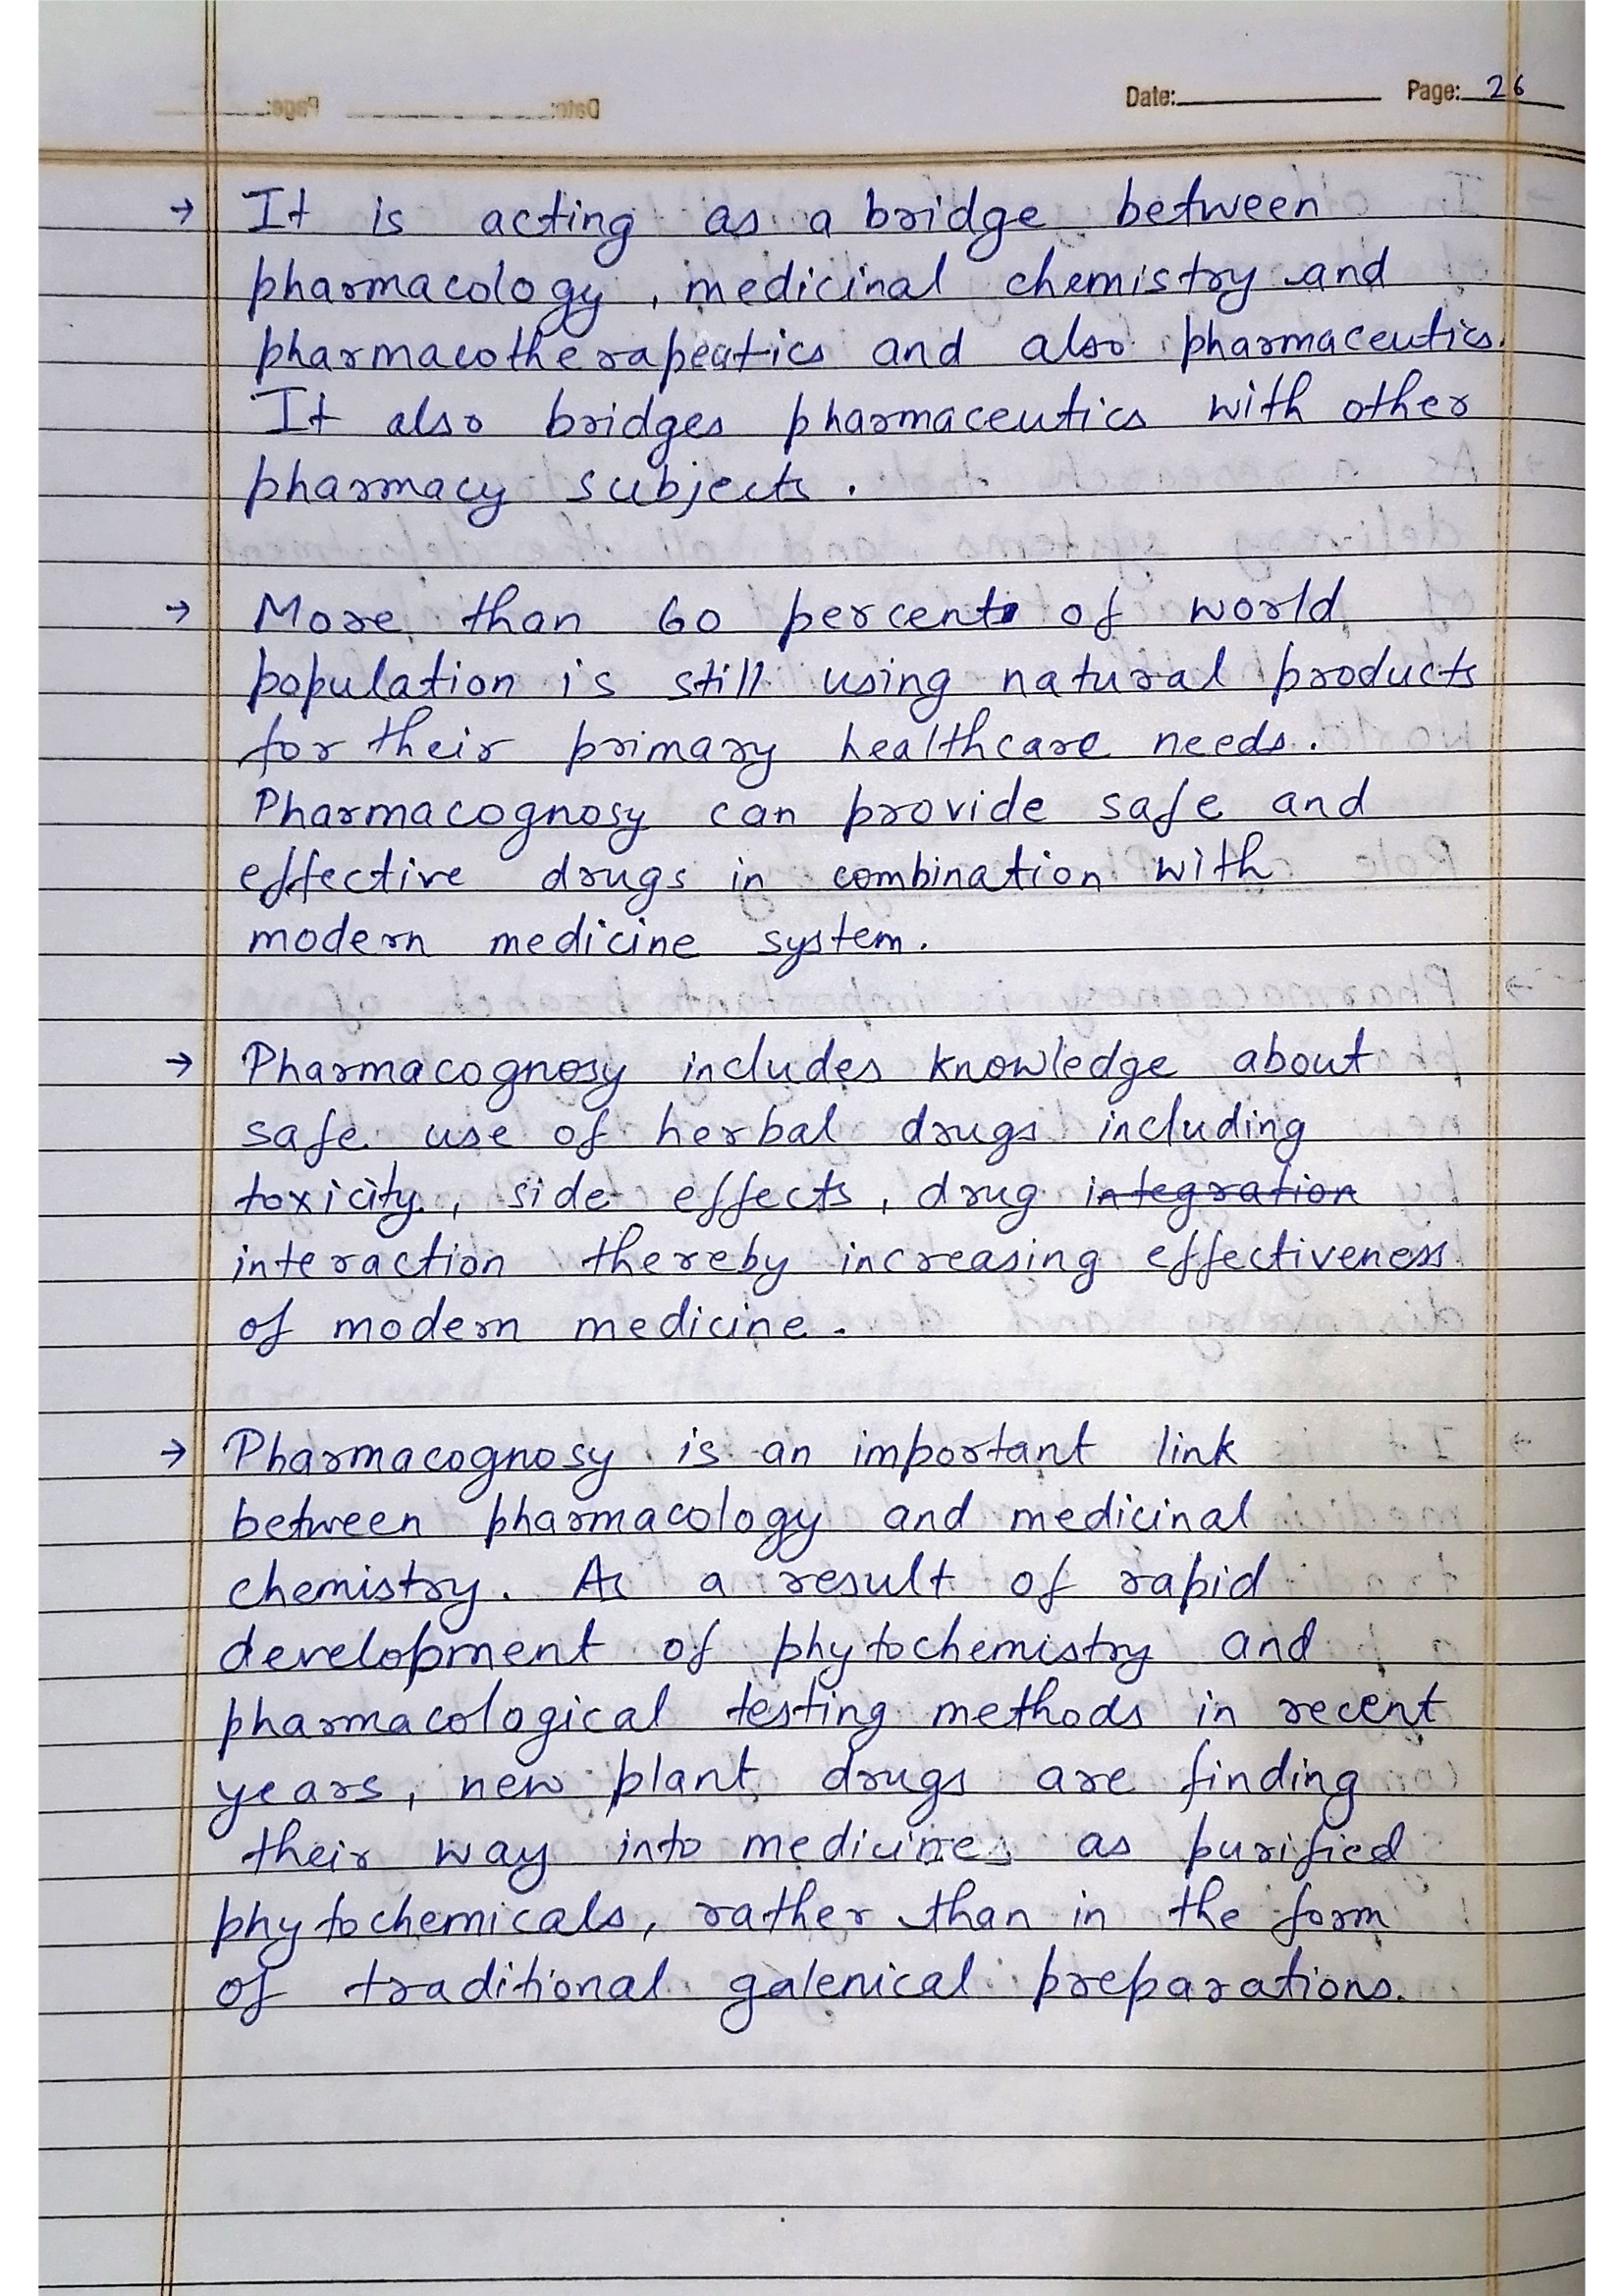 Date: Page: 26
→ It is acting as a bridge between
pharmacology, medicinal chemistry and
pharmacotherapeutics and also pharmaceutics.
It also bridges pharmaceutics with other
pharmacy subjects.
→ More than 60 percent of world
population is still using natural products
for their primary healthcare needs.
Pharmacognosy can provide safe and
effective drugs in combination with
modern medicine system.
→ Pharmacognosy includes knowledge about
safe use of herbal drugs including
toxicity, side effects, drug integration
interaction thereby increasing effectiveness
of modern medicine.
→ Pharmacognosy is an important link
between pharmacology and medicinal
chemistry. As a result of rapid
development of phytochemistry and
pharmacological testing methods in recent
years, new plant drugs are finding
their way into medicines as purified
phytochemicals, rather than in the form
of traditional galenical preparations.